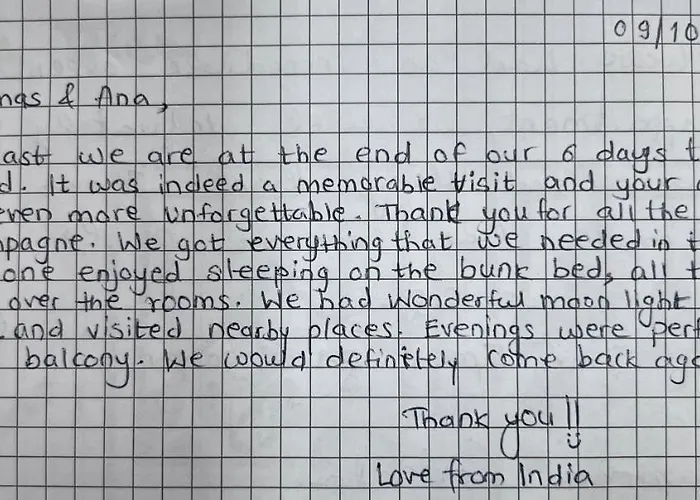 09/10
ngs & Ana,
ast we are at the end of our 6 days t
d. It was indeed a memorable visit and your
even more unforgettable. Thank you for all the
pagne. We got everything that we needed in t
one enjoyed sleeping on the bunk bed, all t
over the rooms. We had wonderful moon light
and visited nearby places. Evenings were perf
balcony. We would definitely come back aga
Thank you!!
Love from India